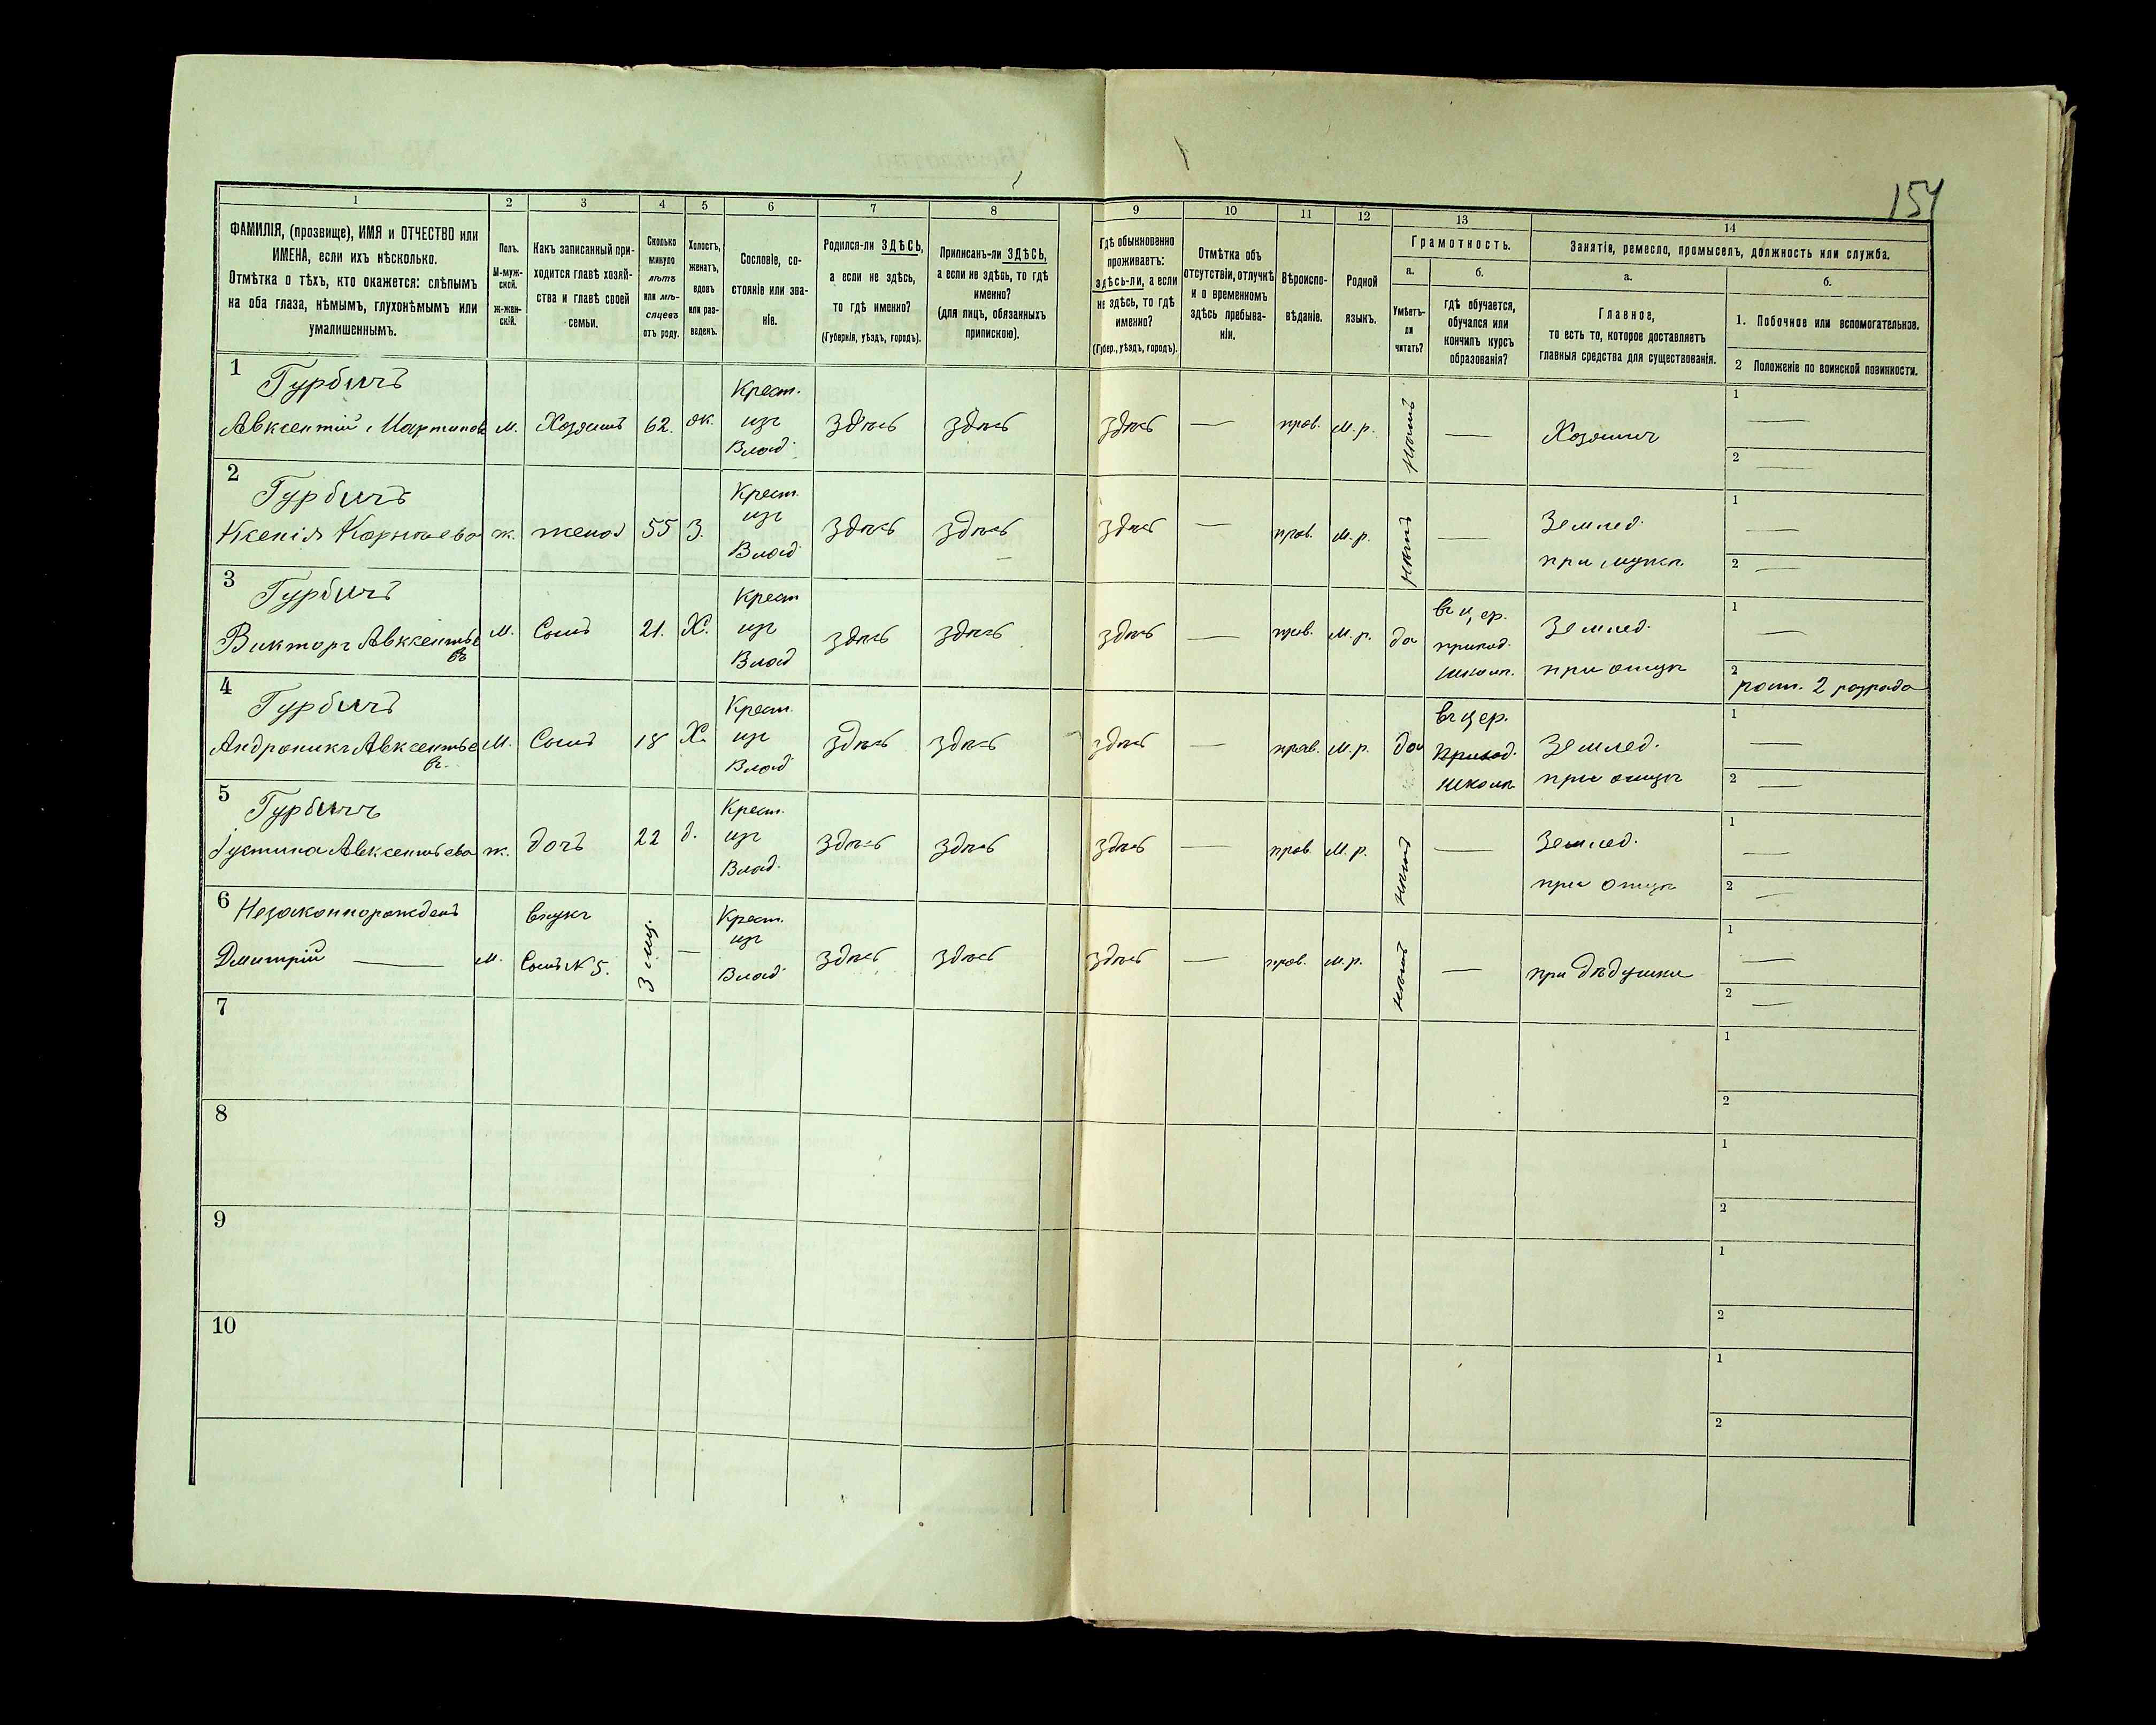 154
1 2 3 4 5 6 7 8 9 10 11 12 13 14
ФАМИЛІЯ, (прозвище), ИМЯ и ОТЧЕСТВО или
ИМЕНА, если ихъ нѣсколько.
Отмѣтка о тѣхъ, кто окажется: слѣпымъ
на оба глаза, нѣмымъ, глухонѣмымъ или
умалишеннымъ.
Полъ.
М-муж-
ской.
Ж-жен-
скій.
Какъ записанный при-
ходится главѣ хозяй-
ства и главѣ своей
семьи.
Сколько
минуло
лѣтъ
или мѣ-
сяцевъ
отъ роду.
Холостъ,
женатъ,
вдовъ
или раз-
веденъ.
Сословіе, со-
стояніе или зва-
ніе.
Родился-ли ЗДѢСЬ,
а если не здѣсь,
то гдѣ именно?
(Губернія, уѣздъ, городъ).
Приписанъ-ли ЗДѢСЬ,
а если не здѣсь, то гдѣ
именно?
(для лицъ, обязанныхъ
припискою).
Гдѣ обыкновенно
проживаетъ:
здѣсь-ли, а если
не здѣсь, то гдѣ
именно?
(Губер., уѣздъ, городъ).
Отмѣтка объ
отсутствіи, отлучкѣ
и о временномъ
здѣсь пребыва-
ніи.
Вѣроиспо-
вѣданіе.
Родной
языкъ.
Грамотность.
а.
Умѣетъ-
ли
читать?
б.
гдѣ обучается,
обучался или
кончилъ курсъ
образованія?
Занятія, ремесло, промыселъ, должность или служба.
а.
Главное,
то есть то, которое доставляетъ
главныя средства для существованія.
б.
1. Побочное или вспомогательное.
2 Положеніе по воинской повинности.
1 Гурбичъ
Авксентій Мартинов м. Хозяинъ 62. ж. Крест. изъ Влад. здѣсь здѣсь здѣсь — прав. м.р. нѣтъ — Хозяинъ 1 — 2 —
2 Гурбичъ
Ксенія Корнѣева ж. жена 55 З. Крест. изъ Влад. здѣсь здѣсь здѣсь — прав. м.р. нѣтъ — Землед. при мужѣ 1 — 2 —
3 Гурбичъ
Викторъ Авксентье
въ м. Сынъ 21. Х. Крест изъ Влад здѣсь здѣсь здѣсь — прав. м.р. да въ цер. приход. школѣ. Землед. при отцѣ 1 — 2 ратн. 2 разряда
4 Гурбичъ
Андроникъ Авксентье
въ. м. Сынъ 18 Х. Крест. изъ Влад здѣсь здѣсь здѣсь — прав. м.р. да въ цер. Приход. школѣ Землед. при отцѣ 1 — 2 —
5 Гурбичъ
Іустина Авксентьева ж. дочь 22 д. Крест. изъ Влад. здѣсь здѣсь здѣсь — прав. м.р. нѣтъ — Землед. при отцѣ 1 — 2 —
6 Незаконнорожденъ
Дмитрій — м. внукъ Сынъ № 5. 3 мц. — Крест. изъ Влад здѣсь здѣсь здѣсь — прав. м.р. нѣтъ — при дѣдушки 1 — 2 —
7 1 2
8 1 2
9 1 2
10 1 2